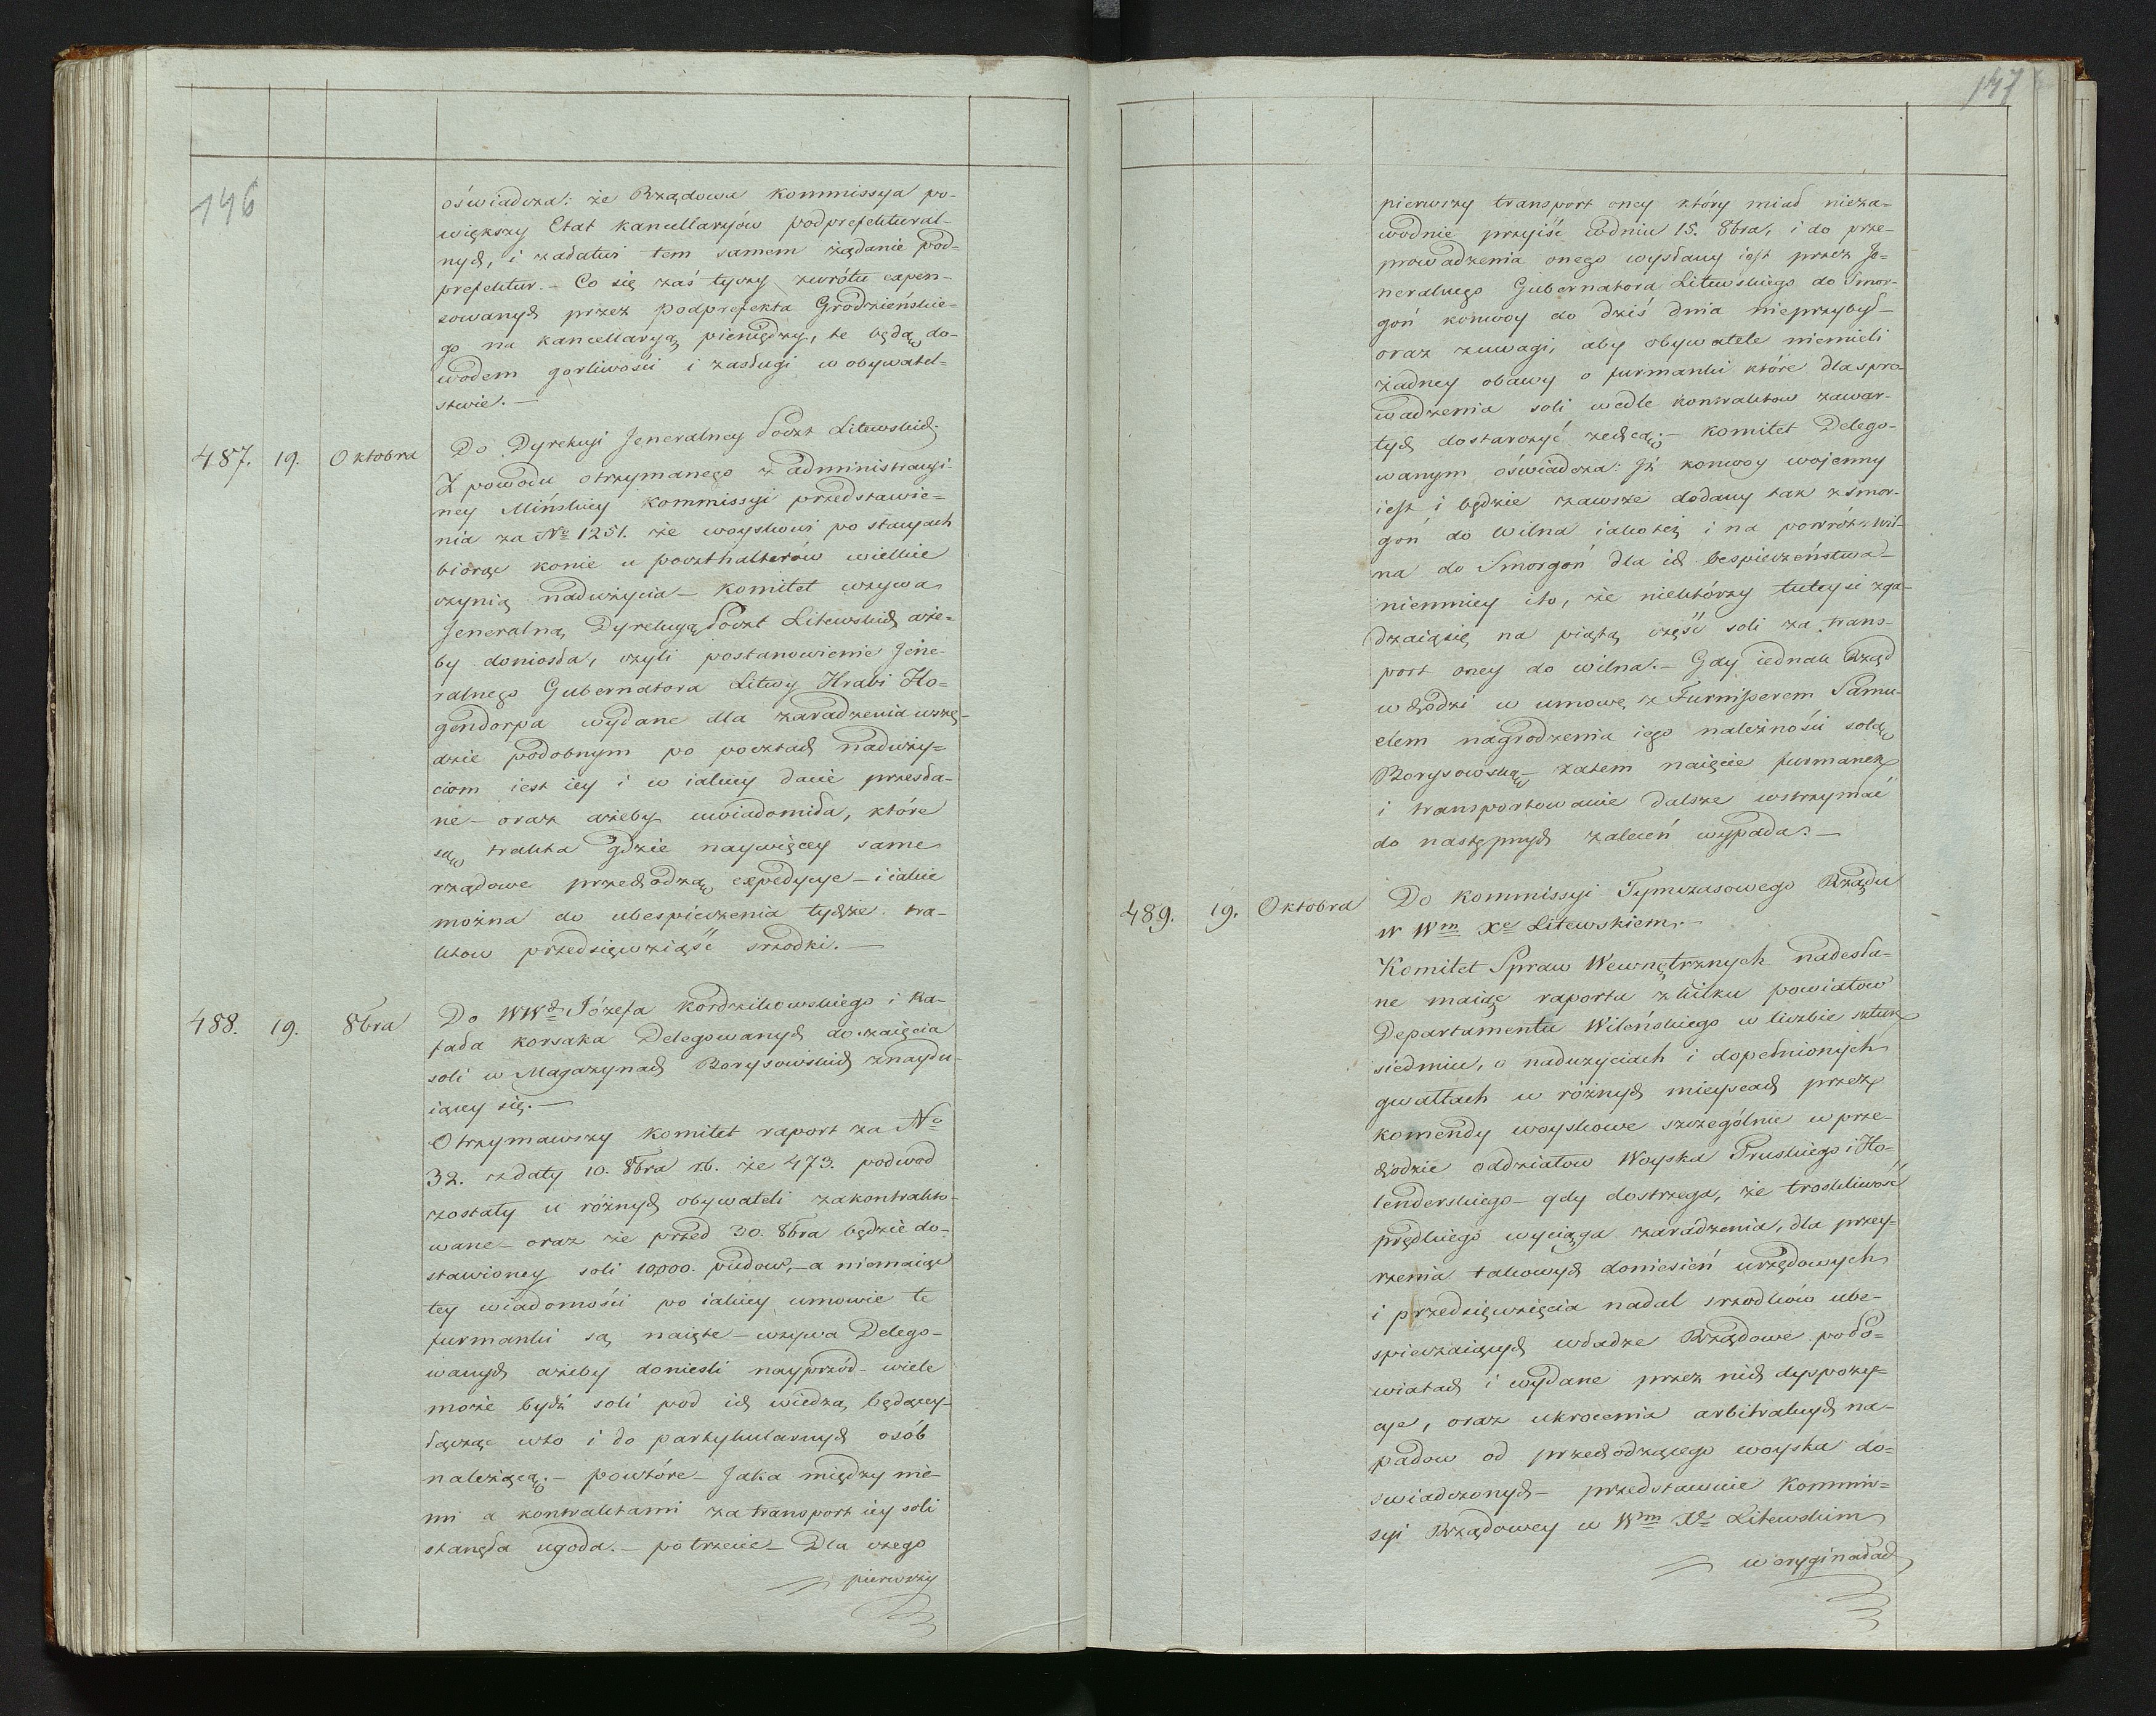 146
oświadcza: że Rządowa Kommissya po-
większy Etat kancellaryów podprefektural-
nych, i zadatwi tem samem żądanie pod-
prefektur. – Co się zaś tyczy zwrótu expen-
sowanych przez Podprefekta Grodzieńskie-
go na kancellaryą pieniędzy, te będą do-
wodem gorliwości i zasługi w obywatel-
stwie. –
487. 19. Oktobra Do Dyrekcyi Jeneralney Poczt Litewskich.
Z powodu otrzymanego z administracyi-
ney Mińskiey Kommissyi przedstawie-
nia za No 1251. że woyskowi po stacyach
biorąc konie u poczthalterów wielkie
czynią nadużycia – Komitet wzywa
Jeneralną Dyrekcyą Poczt Litewskich aże-
by doniosła, czyli postanowienie Jene-
ralnego Gubernatora Litwy Hrabi Ho-
gendorpa wydane dla zaradzenia wszę-
dzie podobnym po pocztach naduży-
ciom iest iey i w iakiey dacie przesła-
ne – oraz ażeby uwiadomiła, które
są trakta gdzie naywięcey same
rządowe przechodzą expedycye – i iakie
można do ubespieczenia tychże tra-
ktow przedsięwziąść srzodki. –
488. 19. 8bra Do WWch Józefa Kordzikowskiego i Ra-
fała Korsaka Delegowanych do zaięcia
soli w Magazynach Borysowskich znaydu-
iącey się. –
Otrzymawszy Komitet raport za No
32. z daty 10. 8bra r.b. że 473. podwod
zostały u różnych obywateli zakontrakto-
wane – oraz że przed 30. 8bra będzie do-
stawioney soli 10,000. pudow, – a niemaiąc
tey wiadomości po iakiey umowie te
furmanki są naięte – wzywa Delego-
wanych ażeby donieśli nayprzód – wiele
może bydź soli pod ich wiedzą będącey –
łącząc wto i do partykularnych osób
należącą. – powtóre – Jaka między nie-
mi a kontraktami za transport iey soli
stanęła ugoda. – po trzecie – Dla czego
pierwszy
147
pierwszy transport oney który miał nieza-
wodnie przyiść w dniu 15. 8bra, i do prze-
prowadzenia onego wysłany iest przez Je-
neralnego Gubernatora Litewskiego do Smor-
goń konwoy do dziś dnia nieprzybył –
oraz zuwagi, aby obywatele niemieli
żadney obawy o furmanki które dla spro-
wadzenia soli wedle kontraktow zawar-
tych dostarczyć zechcą. – Komitet Delego-
wanym oświadcza: Jż konwoy wojenny
iest i będzie zawsze dodany tak z Smor-
goń do Wilna iakoteż i na powrót z Wil-
na do Smorgoń dla ich bespieczeństwa –
niemniey i to, że niektórzy tuteysi zga-
dzaią się na piątą część soli za trans-
port oney do wilna. – Gdy iednak Rząd
wchodzi w umowę z Furnisserem Samu-
elem nagrodzenia iego należności solą
Borysowską – zatem naięcie furmanek
i transportowanie dalsze wstrzymać
do następnych zaleceń wypada. –
489. 19. Oktobra Do Kommissyi Tymczasowego Rządu
w Wm Xe Litewskiem. –
Komitet Spraw Wewnętrznych nadesła-
ne maiąc raporta z kilku powiatow
Departamentu Wileńskiego w liczbie sztuk
siedmiu, o nadużyciach i dopełnionych
gwałtach w różnych mieyscach przez
komendy woyskowe szczególnie w prze-
chodzie oddziałow Woyska Pruskiego i Ho-
lenderskiego – gdy dostrzega, że troskliwość
prędkiego wyciąga zaradzenia, dla przey-
rzenia takowych doniesień urzędowych
i przedsięwzięcia nadal srzodków ube-
spieczaiących władze Rządowe po Po-
wiatach i wydane przez nich dyspozy-
cye, oraz ukrocenia arbitralnych na-
padow od przechodzącego woyska do-
swiadczonych – przedstawuie Kommis-
syi Rządowey w Wm Xe Litewskim
w orygina​łach